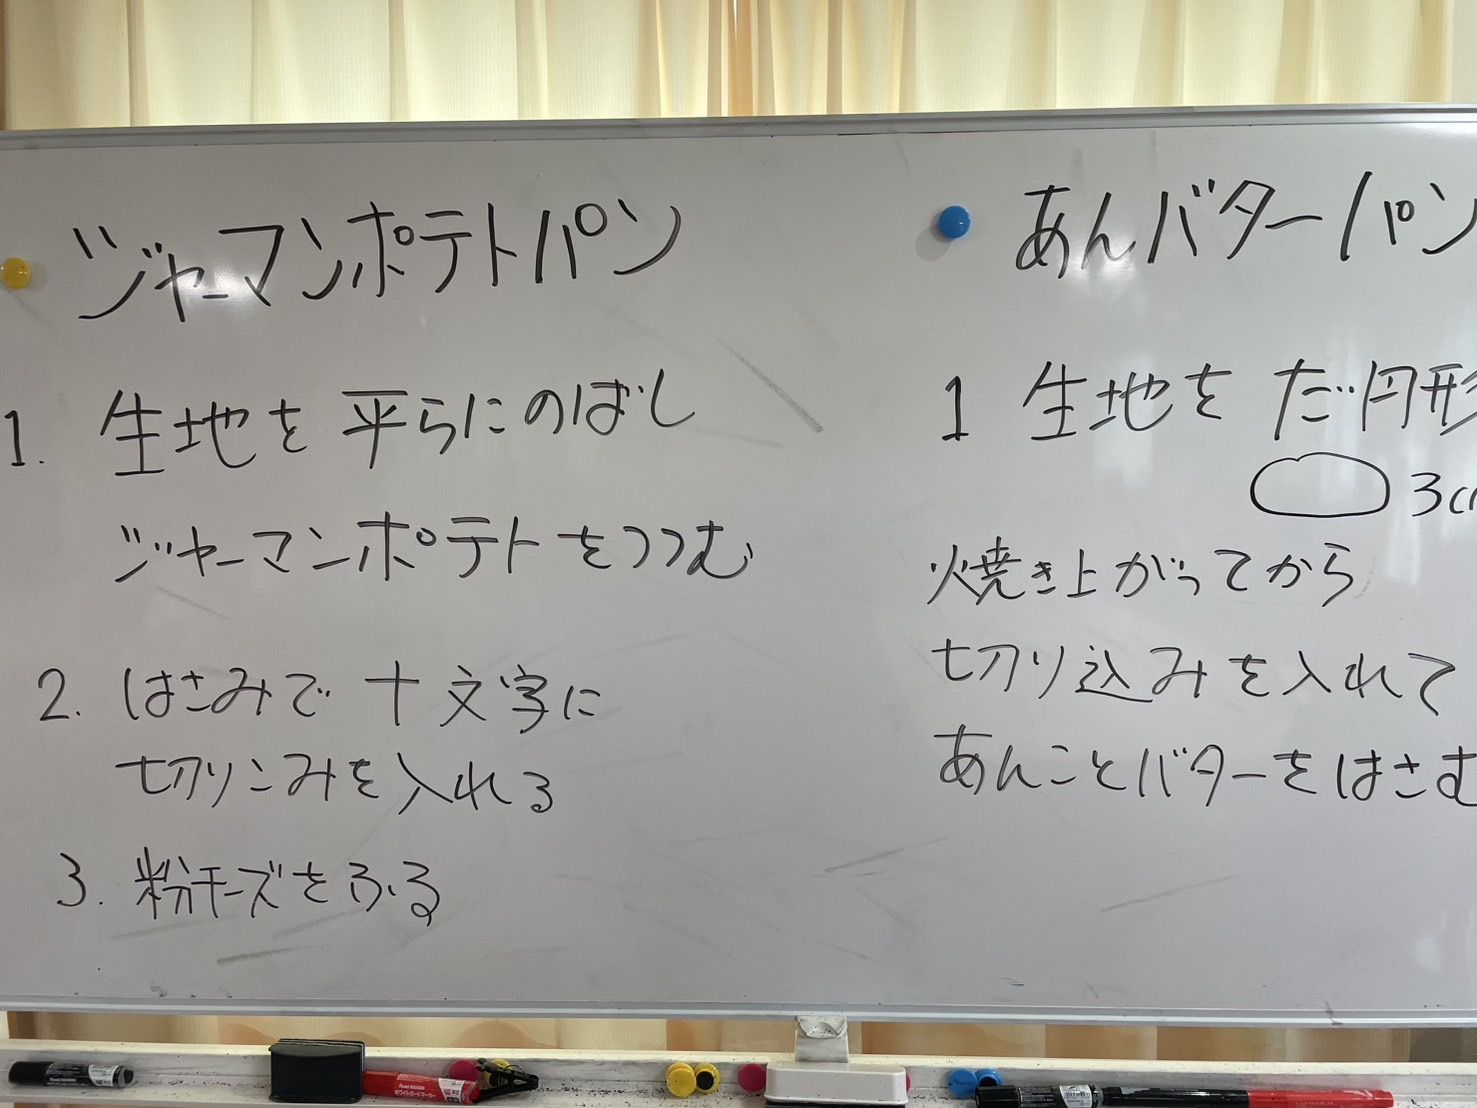 ジャーマンポテトパン
1. 生地を平らにのばし
ジャーマンポテトをつつむ
2. はさみで十文字に
切りこみを入れる
3. 粉チーズをふる
あんバターパン
1 生地をだ円形
3c
焼き上がってから
切り込みを入れて
あんことバターをはさむ